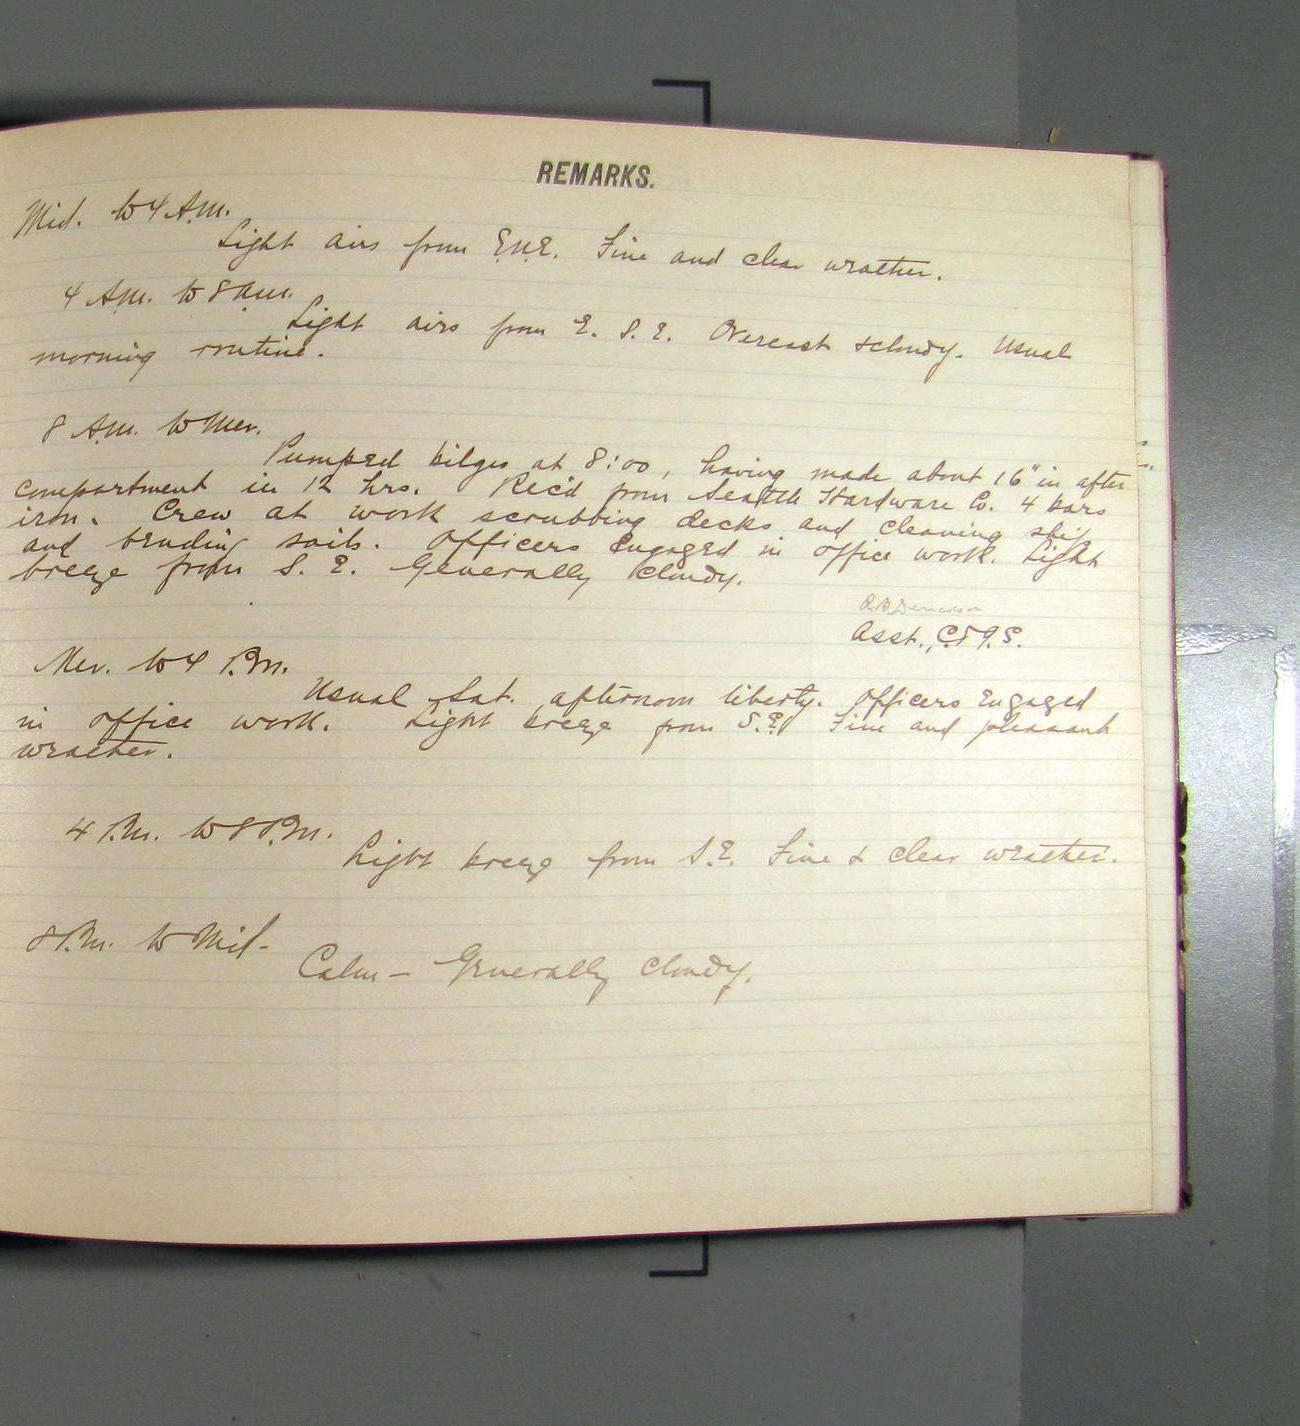 REMARKS.
Mid. to 4 A.M.
Light airs from E.N.E. Fine and clear weather.
4 A.M. to 8 a.m.
Light airs from E. S. E. Overcast & cloudy. Usual
morning routine.
8 A.M. to Mer.
Pumped bilges at 8:00, having made about 16" in after
compartment in 12 hrs. Rec'd from Seattle Hardware Co. 4 bars
iron. Crew at work scrubbing decks and cleaning ship
and bending sails. Officers Engaged in office work. Light
breeze from S. E. Generally cloudy.
Asst., C.&G.S.
Mer. to 4 P.M.
Usual Sat. afternoon liberty. Officers Engaged
in office work. Light breeze from S.E. Fine and pleasant
weather.
4 P.M. to 8 P.M.
Light breeze from S.E. Fine & clear weather.
8 P.M. to Mid-
Calm - Generally cloudy.